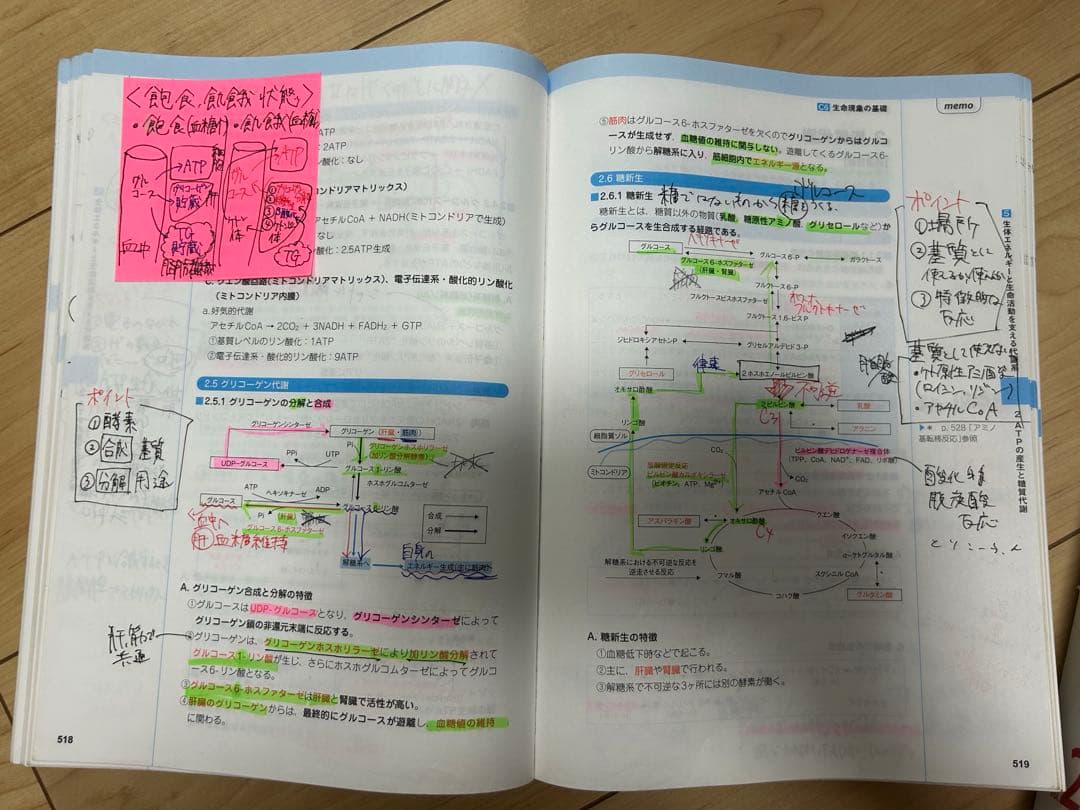 <飽食、飢餓状態>
・飽食(血糖↑)・飢餓(血糖
グルコース
→ATP
グリコーゲン貯蔵
TG貯蔵
血中
肝
ATP
ケトン体
TG
ATP
: 2ATP
酸化 : なし
コンドリアマトリックス)
アセチルCoA + NADH(ミトコンドリアで生成)
なし
酸化 : 2.5ATP生成
C. クエン酸回路(ミトコンドリアマトリックス)、電子伝達系・酸化的リン酸化
(ミトコンドリア内膜)
a.好気的代謝
アセチルCoA → 2CO₂ + 3NADH + FADH₂ + GTP
①基質レベルのリン酸化:1ATP
②電子伝達系・酸化的リン酸化:9ATP
2.5 グリコーゲン代謝
■2.5.1 グリコーゲンの分解と合成
ポイント
①酵素
②合成 基質
③分解 用途
グリコーゲンシンターゼ
グリコーゲン(肝臓・筋肉)
Pi
グリコーゲンホスホリラーゼ
(加リン酸分解酵素)
PPi
UTP
UDP-グルコース
グルコース1-リン酸
ホスホグルコムターゼ
ATP
ADP
グルコース
ヘキソキナーゼ
グルコース6-リン酸
Pi
(肝臓)
グルコース6-ホスファターゼ
合成
分解
血中へ
肝 血糖維持
自身の
解糖系へ
エネルギー生成(主に筋肉)
A. グリコーゲン合成と分解の特徴
①グルコースはUDP-グルコースとなり、グリコーゲンシンターゼによって
グリコーゲン鎖の非還元末端に反応する。
肝、筋で
共通
②グリコーゲンは、グリコーゲンホスホリラーゼにより加リン酸分解されて
グルコース1-リン酸が生じ、さらにホスホグルコムターゼによってグルコ
ース6-リン酸となる。
③グルコース6-ホスファターゼは肝臓と腎臓で活性が高い。
④肝臓のグリコーゲンからは、最終的にグルコースが遊離し、血糖値の維持
に関わる。
518
C6 生命現象の基礎
memo
⑤筋肉はグルコース6-ホスファターゼを欠くのでグリコーゲンからはグルコ
ースが生成せず、血糖値の維持に関与しない。遊離してくるグルコース6-
リン酸から解糖系に入り、筋細胞内でエネルギー源となる。
2.6 糖新生
グルコース
■2.6.1 糖新生 糖でないものから糖をつくる
糖新生とは、糖質以外の物質(乳酸、糖原性アミノ酸、グリセロールなど)か
らグルコースを生合成する経路である。
ヘキソキナーゼ
グルコース
グルコース6-P
ガラクトース
グルコース6-ホスファターゼ
(肝臓・腎臓)
フルクトース6-P
フルクトースビスホスファターゼ
ホスホフルクトキナーゼ
フルクトース1,6-ビスP
ジヒドロキシアセトン-P
グリセルアルデヒド3-P
グリセロール
2.ホスホエノールピルビン酸
オキサロ酢酸
不可逆
リンゴ酸
2.ピルビン酸
C3
乳酸
アラニン
細胞質ゾル
ミトコンドリア
CO₂
炭酸固定反応
ピルビン酸カルボキシラーゼ
(ビオチン, ATP, Mg²⁺)
ピルビン酸デヒドロゲナーゼ複合体
(TPP, CoA, NAD⁺, FAD, リポ酸)
CO₂
アセチルCoA
アスパラギン酸
オキサロ酢酸
C4
クエン酸
イソクエン酸
リンゴ酸
α-ケトグルタル酸
解糖系における不可逆的な反応
を逆走させる反応
フマル酸
スクシニルCoA
コハク酸
グルタミン酸
A. 糖新生の特徴
①血糖低下時などで起こる。
②主に、肝臓や腎臓で行われる。
③解糖系で不可逆な3ヶ所には別の酵素が働く。
ポイント
①場所
②基質として
使えるか使えないか
③特徴的な
反応
基質として使えない
・ケト原性アミノ酸
(ロイシン、リジン)
・アセチルCoA
▶* p.528「アミノ
基転移反応」参照
酸化的
脱炭酸
反応
5 生体エネルギーと生命活動を支える代謝系
2 ATPの産生と糖質代謝
519